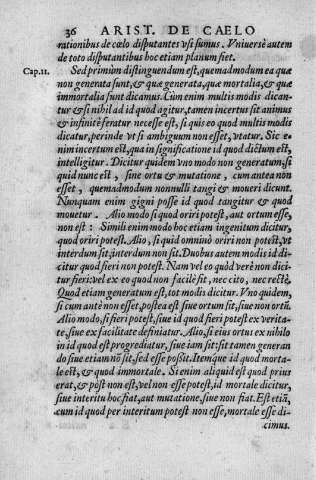 36 ARIST. DE CAELO
rationibus de cœlo disputantes vsi sumus. Vniuersè autem
de toto disputantibus hoc etiam planum fiet.
Cap.11. Sed primùm distinguendum est, quemadmodum ea quæ
non generata sunt, & quæ generata, quæ mortalia, & quæ
immortalia sunt dicamus. Cùm enim multis modis dican-
tur & si nihil ad id quod agitur, tamen incertus sit animus
& infinitè feratur necesse est, si quis eo quod multis modis
dicatur, perinde vt si ambiguum non esset, vtatur. Sic e-
nim incertum est, qua in significatione id quod dictum est,
intelligitur. Dicitur quidem vno modo non generatum, si
quid nunc est, sine ortu & mutatione, cum antea non
esset, quemadmodum nonnulli tangi & moueri dicunt.
Nunquam enim gigni posse id quod tangitur & quod
mouetur. Alio modo si quod oriri potest, aut ortum esse,
non est: Simili enim modo hoc etiam ingenitum dicitur,
quod oriri potest. Alio, si quid omninò oriri non potest, vt
interdum sit, interdum non sit. Duobus autem modis id di-
citur quod fieri non potest. Nam vel eo quòd verè non dici-
tur fieri, vel ex eo quod non facilè fit, nec cito, nec rectè.
Quod etiam generatum est, tot modis dicitur. Vno quidem,
si cum antè non esset, postea est siue ortum sit, siue non ortū.
Alio modo, si fieri potest, siue id quod fieri potest ex verita-
te, siue ex facilitate definiatur. Alio, si eius ortus ex nihilo
in id quod est progrediatur, siue iam sit: sit tamen generan
do siue etiam nō sit, sed esse possit. Itemque id quod morta-
le est, & quod immortale. Si enim aliquid est quod prius
erat, & pòst non est, vel non esse potest, id mortale dicitur,
siue interitu hoc fiat, aut mutatione, siue non fiat. Est etiā,
cum id quod per interitum potest non esse, mortale esse di-
cimus.